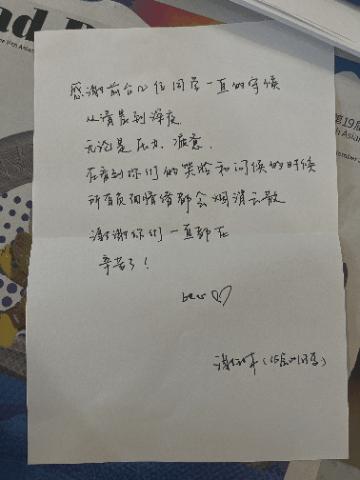 感谢前台各位同学一直的守候
从清晨到深夜
无论是压力、疲惫,
在看到你们的笑脸和问候的时候
所有负面情绪都会烟消云散
谢谢你们一直都在
辛苦了!
best
第19届